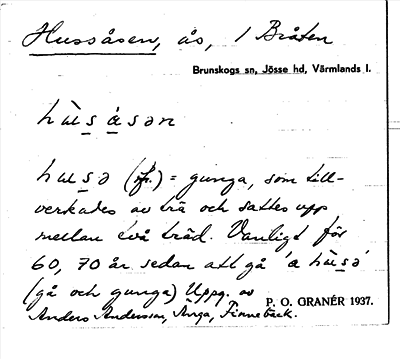 Hussåsen, ås, 1 Bråten
Brunskogs sn, Jösse hd, Värmlands l.
hùsåsən
husə (f.) = gunga, som till-
verkades av trä och sattes upp
mellan två träd. Vanligt för
60, 70 år sedan att gå 'a hùsə'
(gå och gunga) Uppg. av
P. O. GRANÉR 1937.
Anders Andersson, Ånga, Finnebäck.